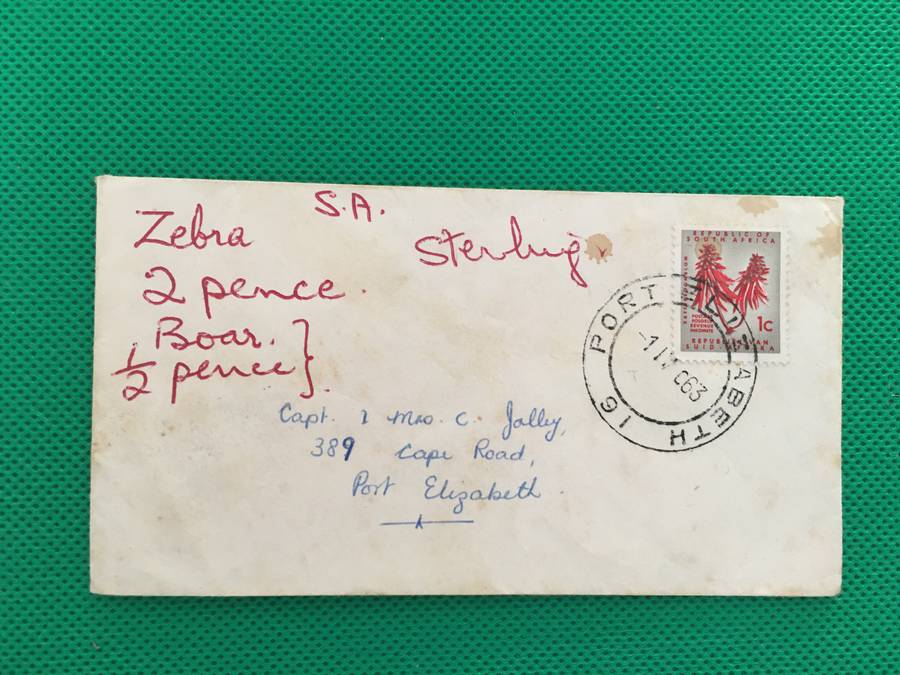 S.A.
Zebra
Sterling
2 pence.
Boar.
1/2 pence
Capt. & Mrs. C. Jolly,
389 Cape Road,
Port Elizabeth.
REPUBLIC OF
SOUTH AFRICA
1c
POSTAGE
POSGELD
REVENUE
INKOMSTE
REPUBLIEK VAN
SUID-AFRIKA
PORT ELIZABETH 16